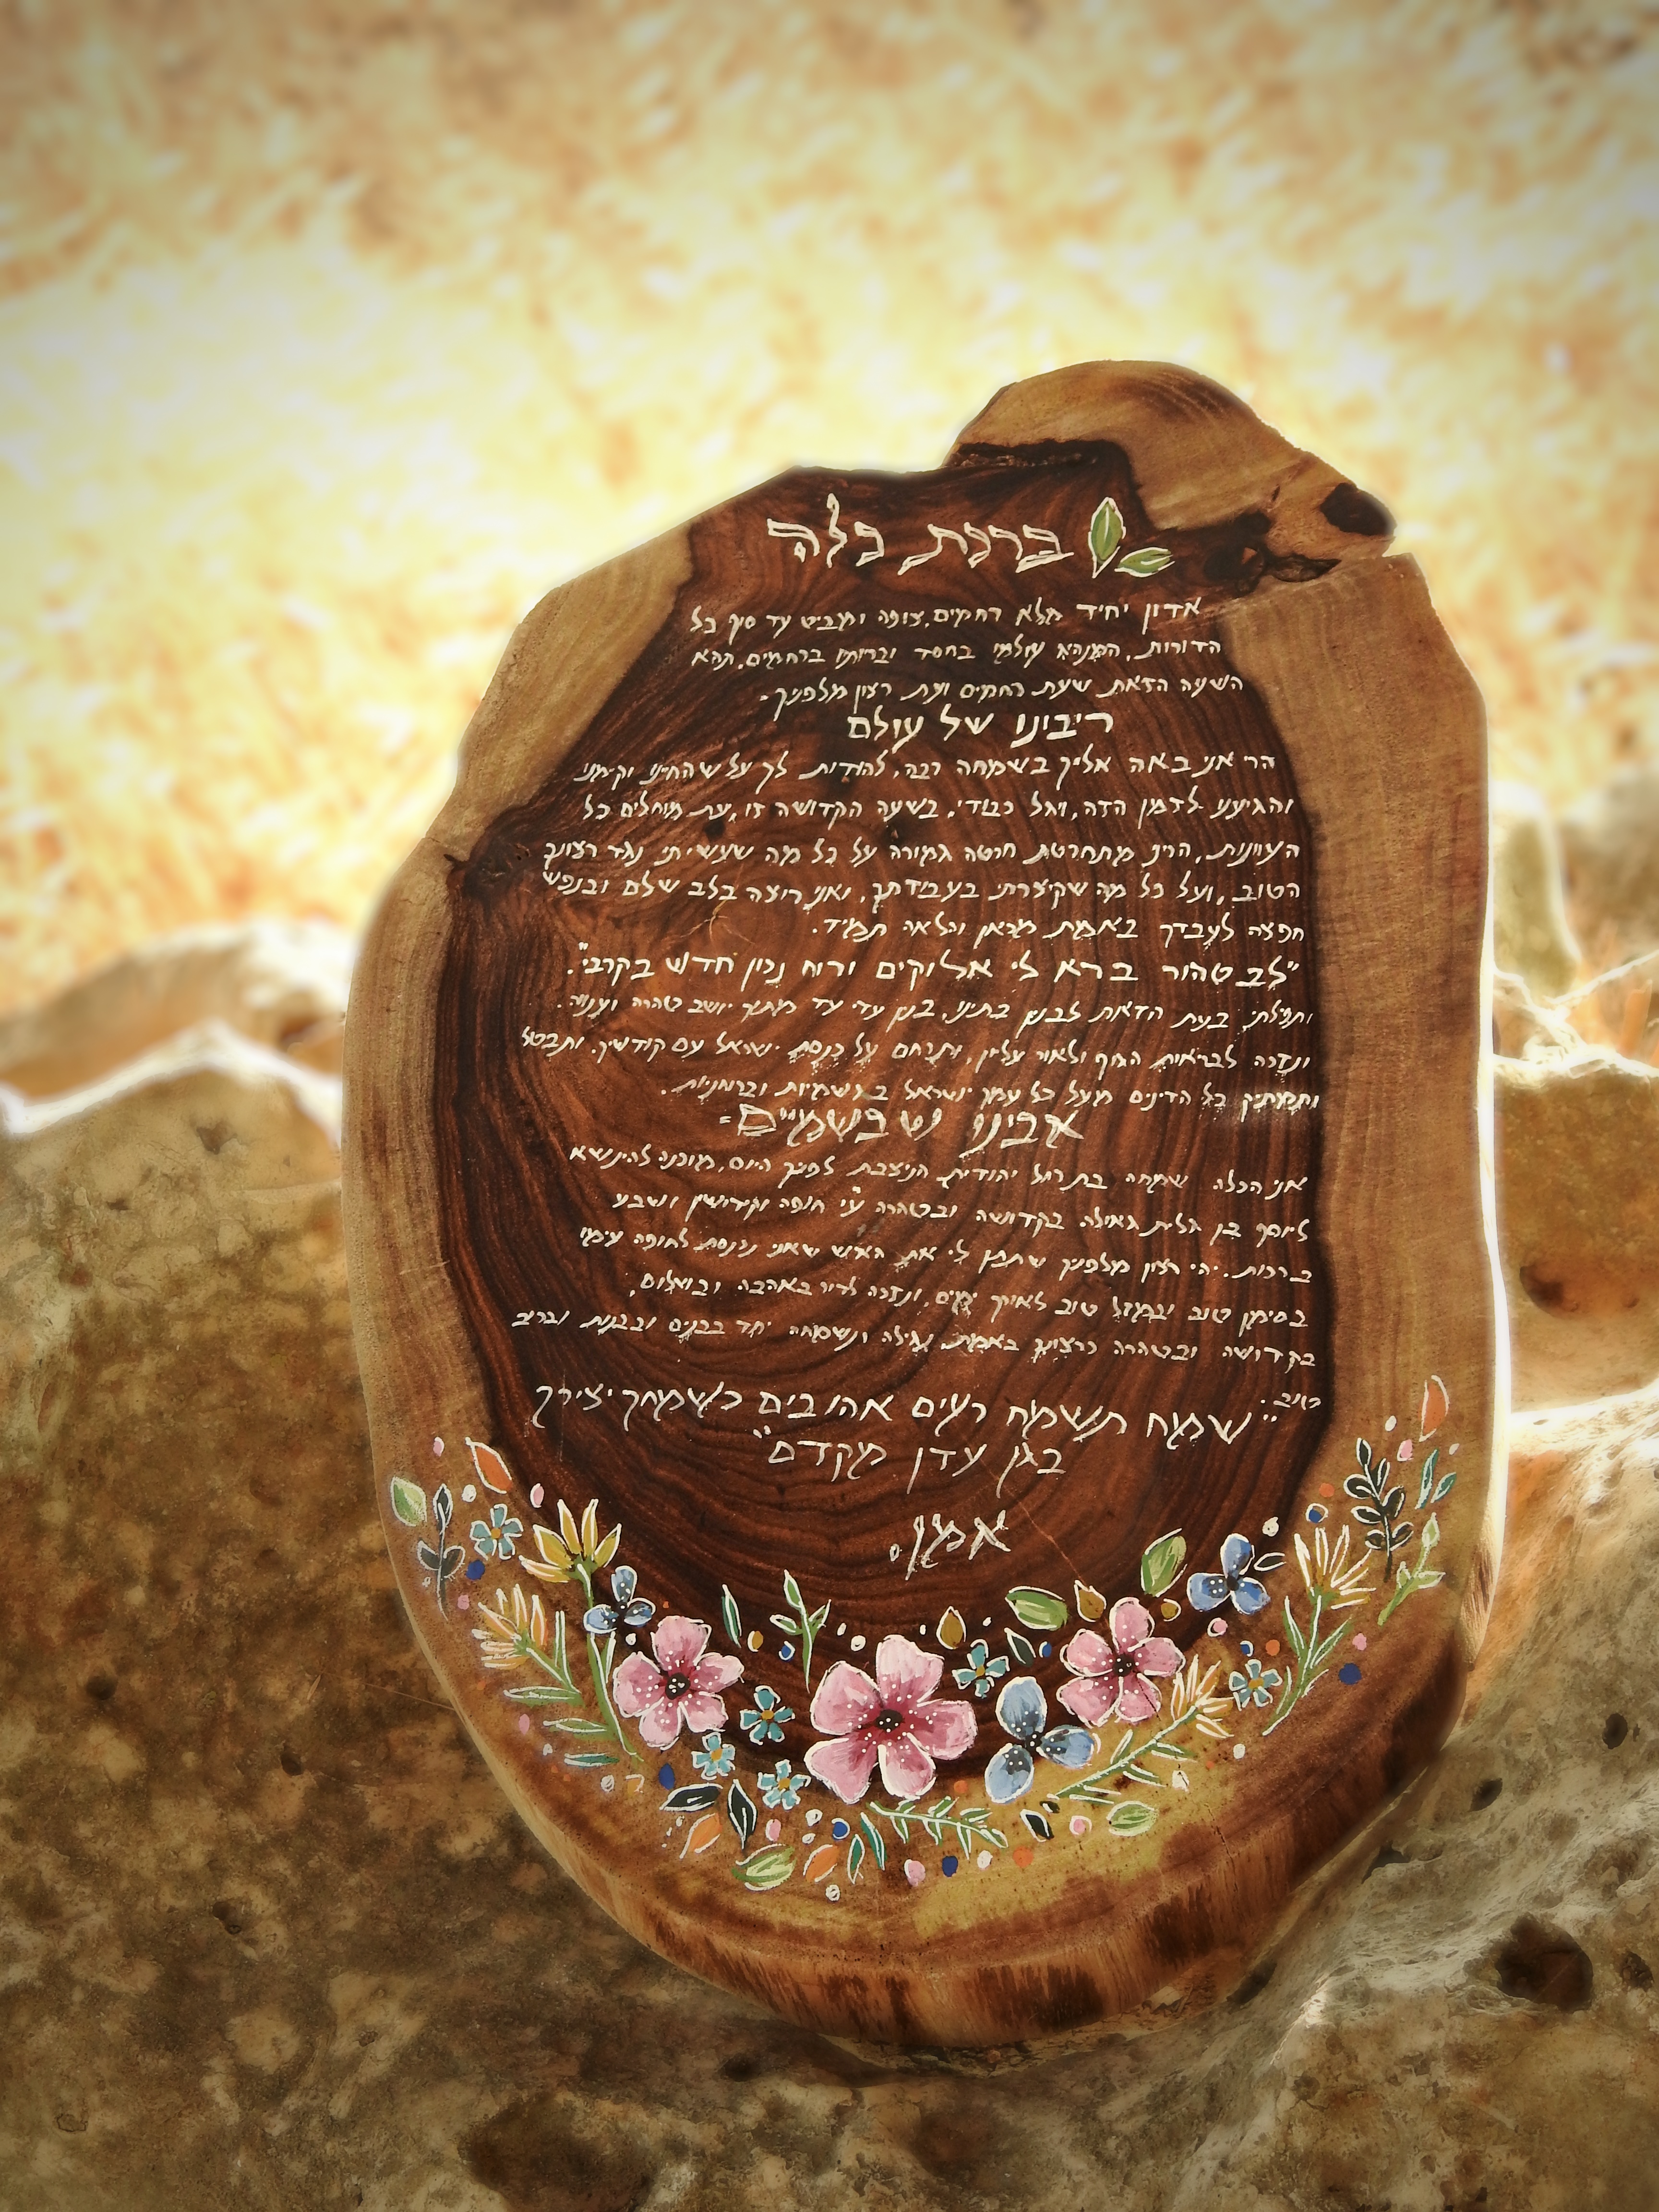 ברכת כלה
אדון יחיד מלא רחמים, צופה ומביט עד סוף כל
הדורות, המנהג עולמו בחסד וברותיו ברחמים, תהא
השעה הזאת שעת רחמים ועת רצון מלפניך.
ריבונו של עולם
הרי אני באה אליך בשמחה רבה, להודות לך על שהחיינו וקימנו
והגיענו לזמן הזה, וחל כבודי. בשעה הקדושה זו, עת מוחלים כל
העוונות, הריני מתחרטת חרטה גמורה על כל מה שעשיתי נגד רצונך
הטוב, ועל כל מה שקיצרתי בעבודתך, ואני רוצה בלב שלם ובנפש
חפצה לעבדך באמת מכאן והלאה תמיד.
"לב טהור ברא לי אלוקים ורוח נכון חדש בקרבי".
ותפילתי בעת הזאת לבנין ביתנו, בנין עדי עד מתוך יושב טהרה וענוה.
ונזכה לבריאות הגוף ולאור עליון, ותרחם על כנסת ישראל עם קודשיך. ותבטל
ותמתיק כל הדינים מעל כל עמך ישראל בגשמיות וברוחניות.
אבינו שבשמיים-
אני הכלה שמחה בת רחל יהודית הניצבת לפניך היום, מוכנה להינשא
ליוסף בן גלית גאולה בקדושה ובטהרה ע"י חופה וקידושין ושבע
ברכות. יהי רצון מלפניך שתתן לי את האיש שאני נכנסת לחופה עימו
בסימן טוב ובמזל טוב לאורך ימים, ונזכה לדור באהבה ובשלום,
בקדושה ובטהרה כרצונך באמת. נגילה ונשמחה יחד בבנים ובבנות וברוב
טוב.
"שמח תשמח רעים אהובים כשמחך יצירך
בגן עדן מקדם"
אמן.